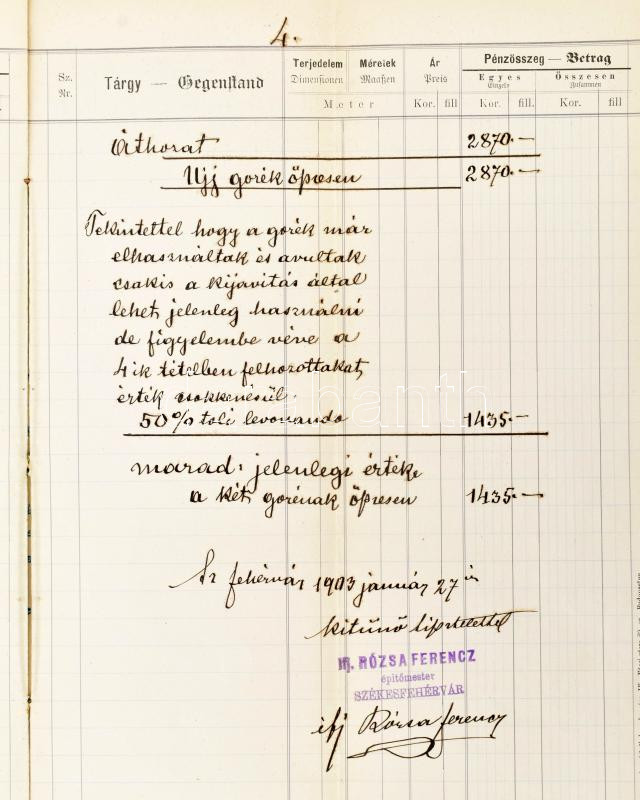 4.
Sz. Tárgy — Gegenstand Terjedelem Méreiek Ár Pénzösszeg — Betrag
Nr. Dimensionen Maaßen Preis Egyes Összesen
Einzeln Zusammen
Meter Kor. fill Kor. fill. Kor. fill
Áthozat 2870.—
Ujj gorék őpresen 2870.—
Tekintettel hogy a gorék már
elhasználtak és avultak
csakis a kijavitás által
lehet jelenleg használni
de figyelembe véve a
4 ik tételben felhozottakat,
érték csokkenésül.
50% toli levonando 1435.—
marad: jelenlegi értéke
a két gorénak őpresen 1435.—
Sz fehérvár 1903 január 27 én
kitünő tisztelettel
Ifj. RÓZSA FERENCZ
építőmester
SZÉKESFEHÉRVÁR
ifj Rózsa Ferencz